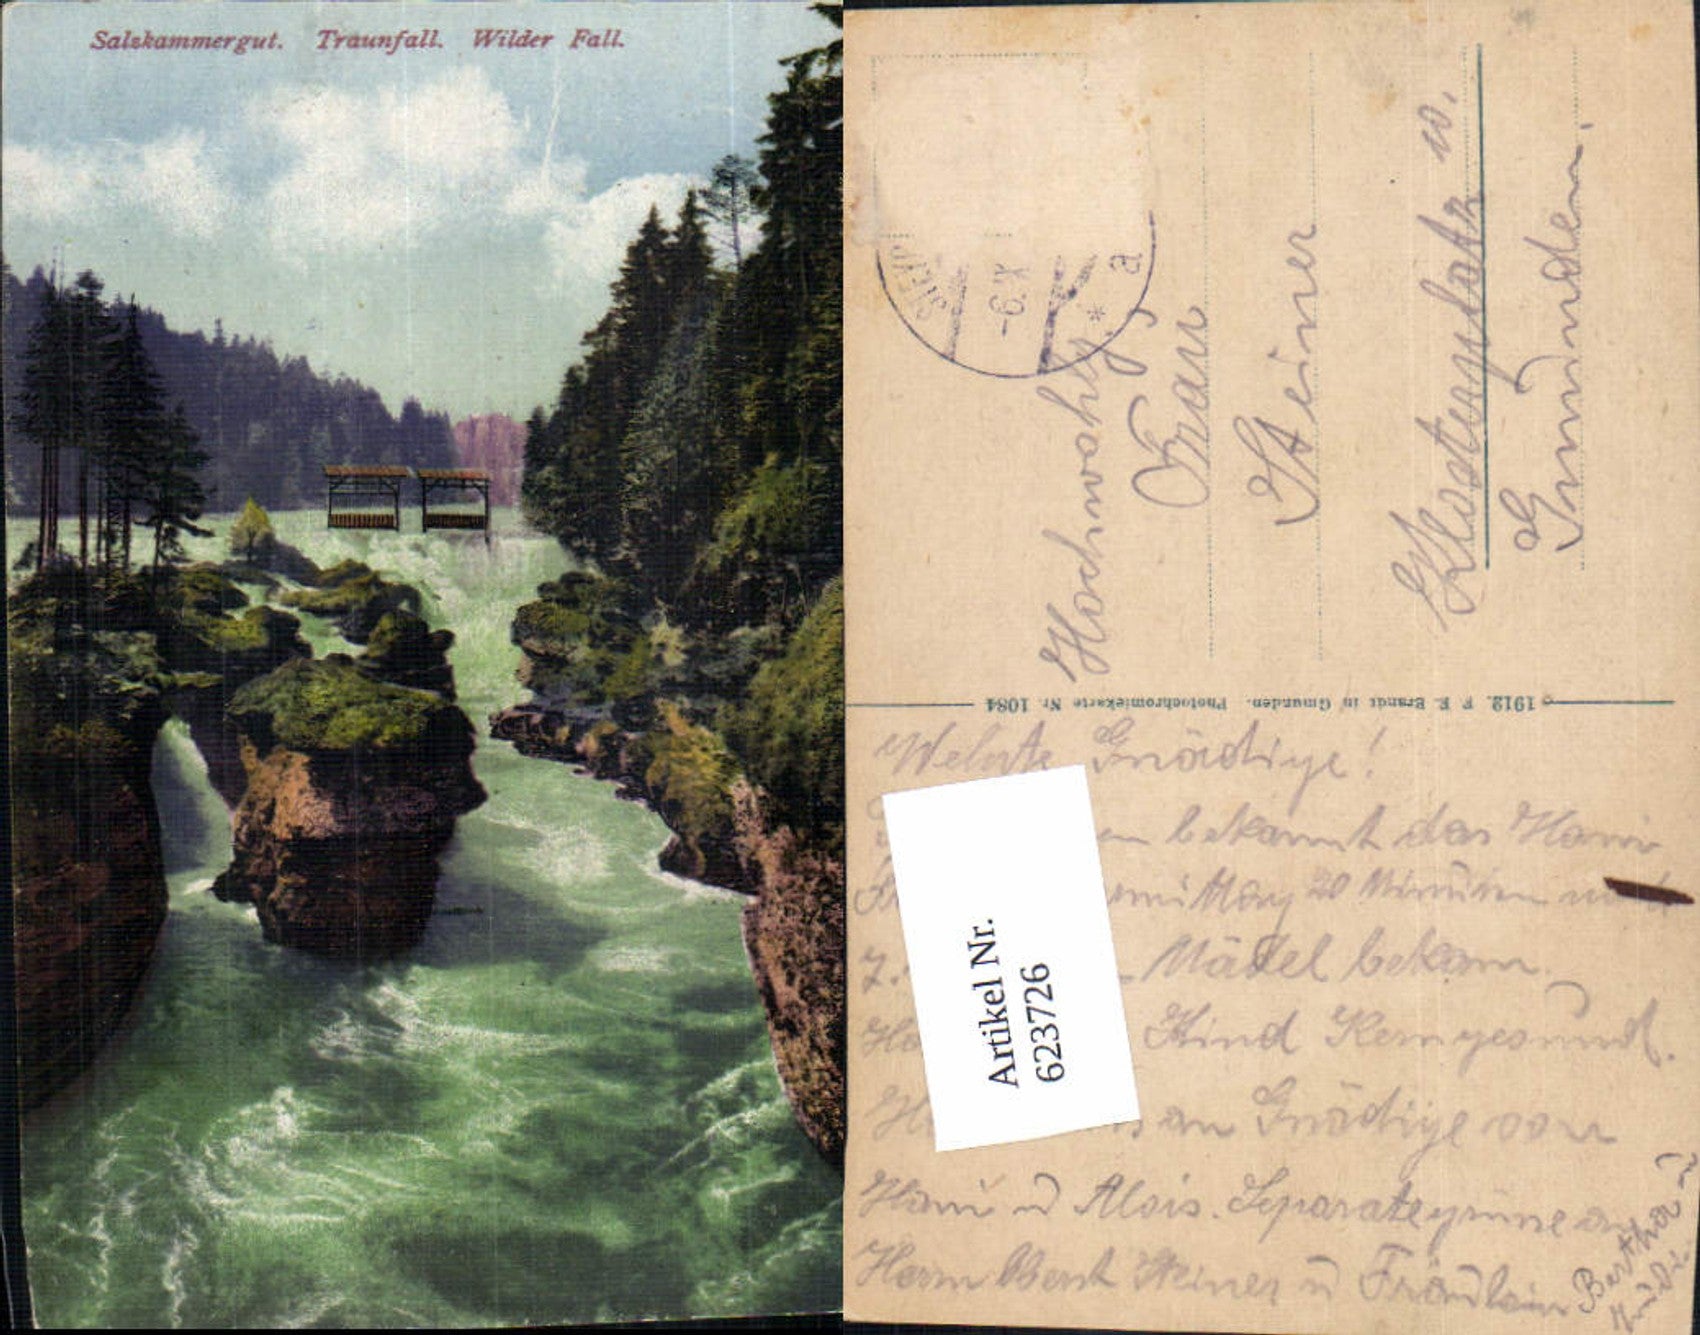 Salzkammergut. Traunfall. Wilder Fall.
-6.X
* a
Hochwohlg.
Frau
Steiner
Klosterplatz 10.
Gmunden.
1912. F. E. Brandt in Gmunden. Photochromiekarte Nr. 1084
Werte Gnädige!
bekannt das Hani
mittag 20 Minuten
7. Mädel bekam.
Kind Kerngesund.
an Gnädige von
Hani u Alois. Separategrüsse an
Herrn Bert Steiner u Fräulein
Bertha u
Artikel Nr.
623726